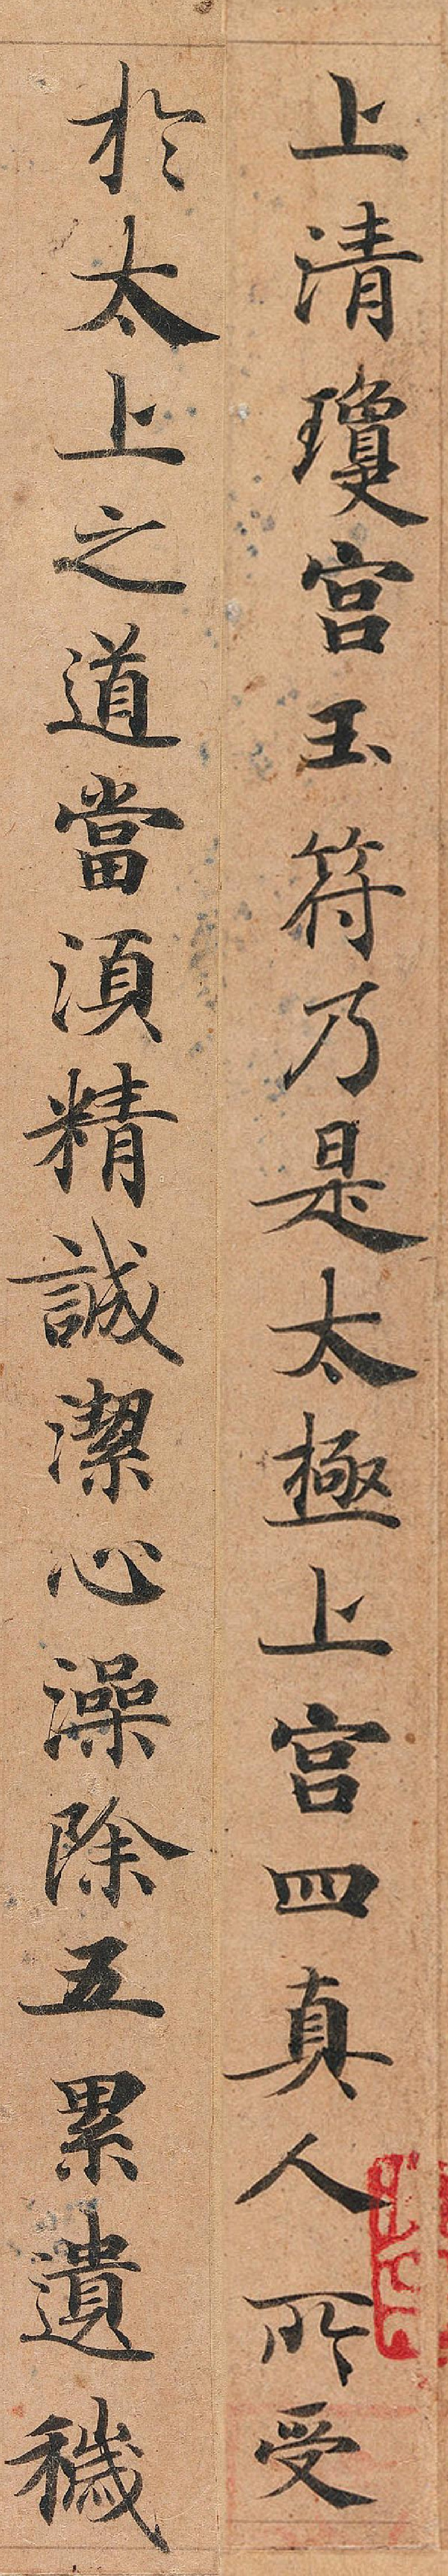 上清瓊宮玉符乃是太極上宮四真人所受
於太上之道當須精誠潔心澡除五累遺穢